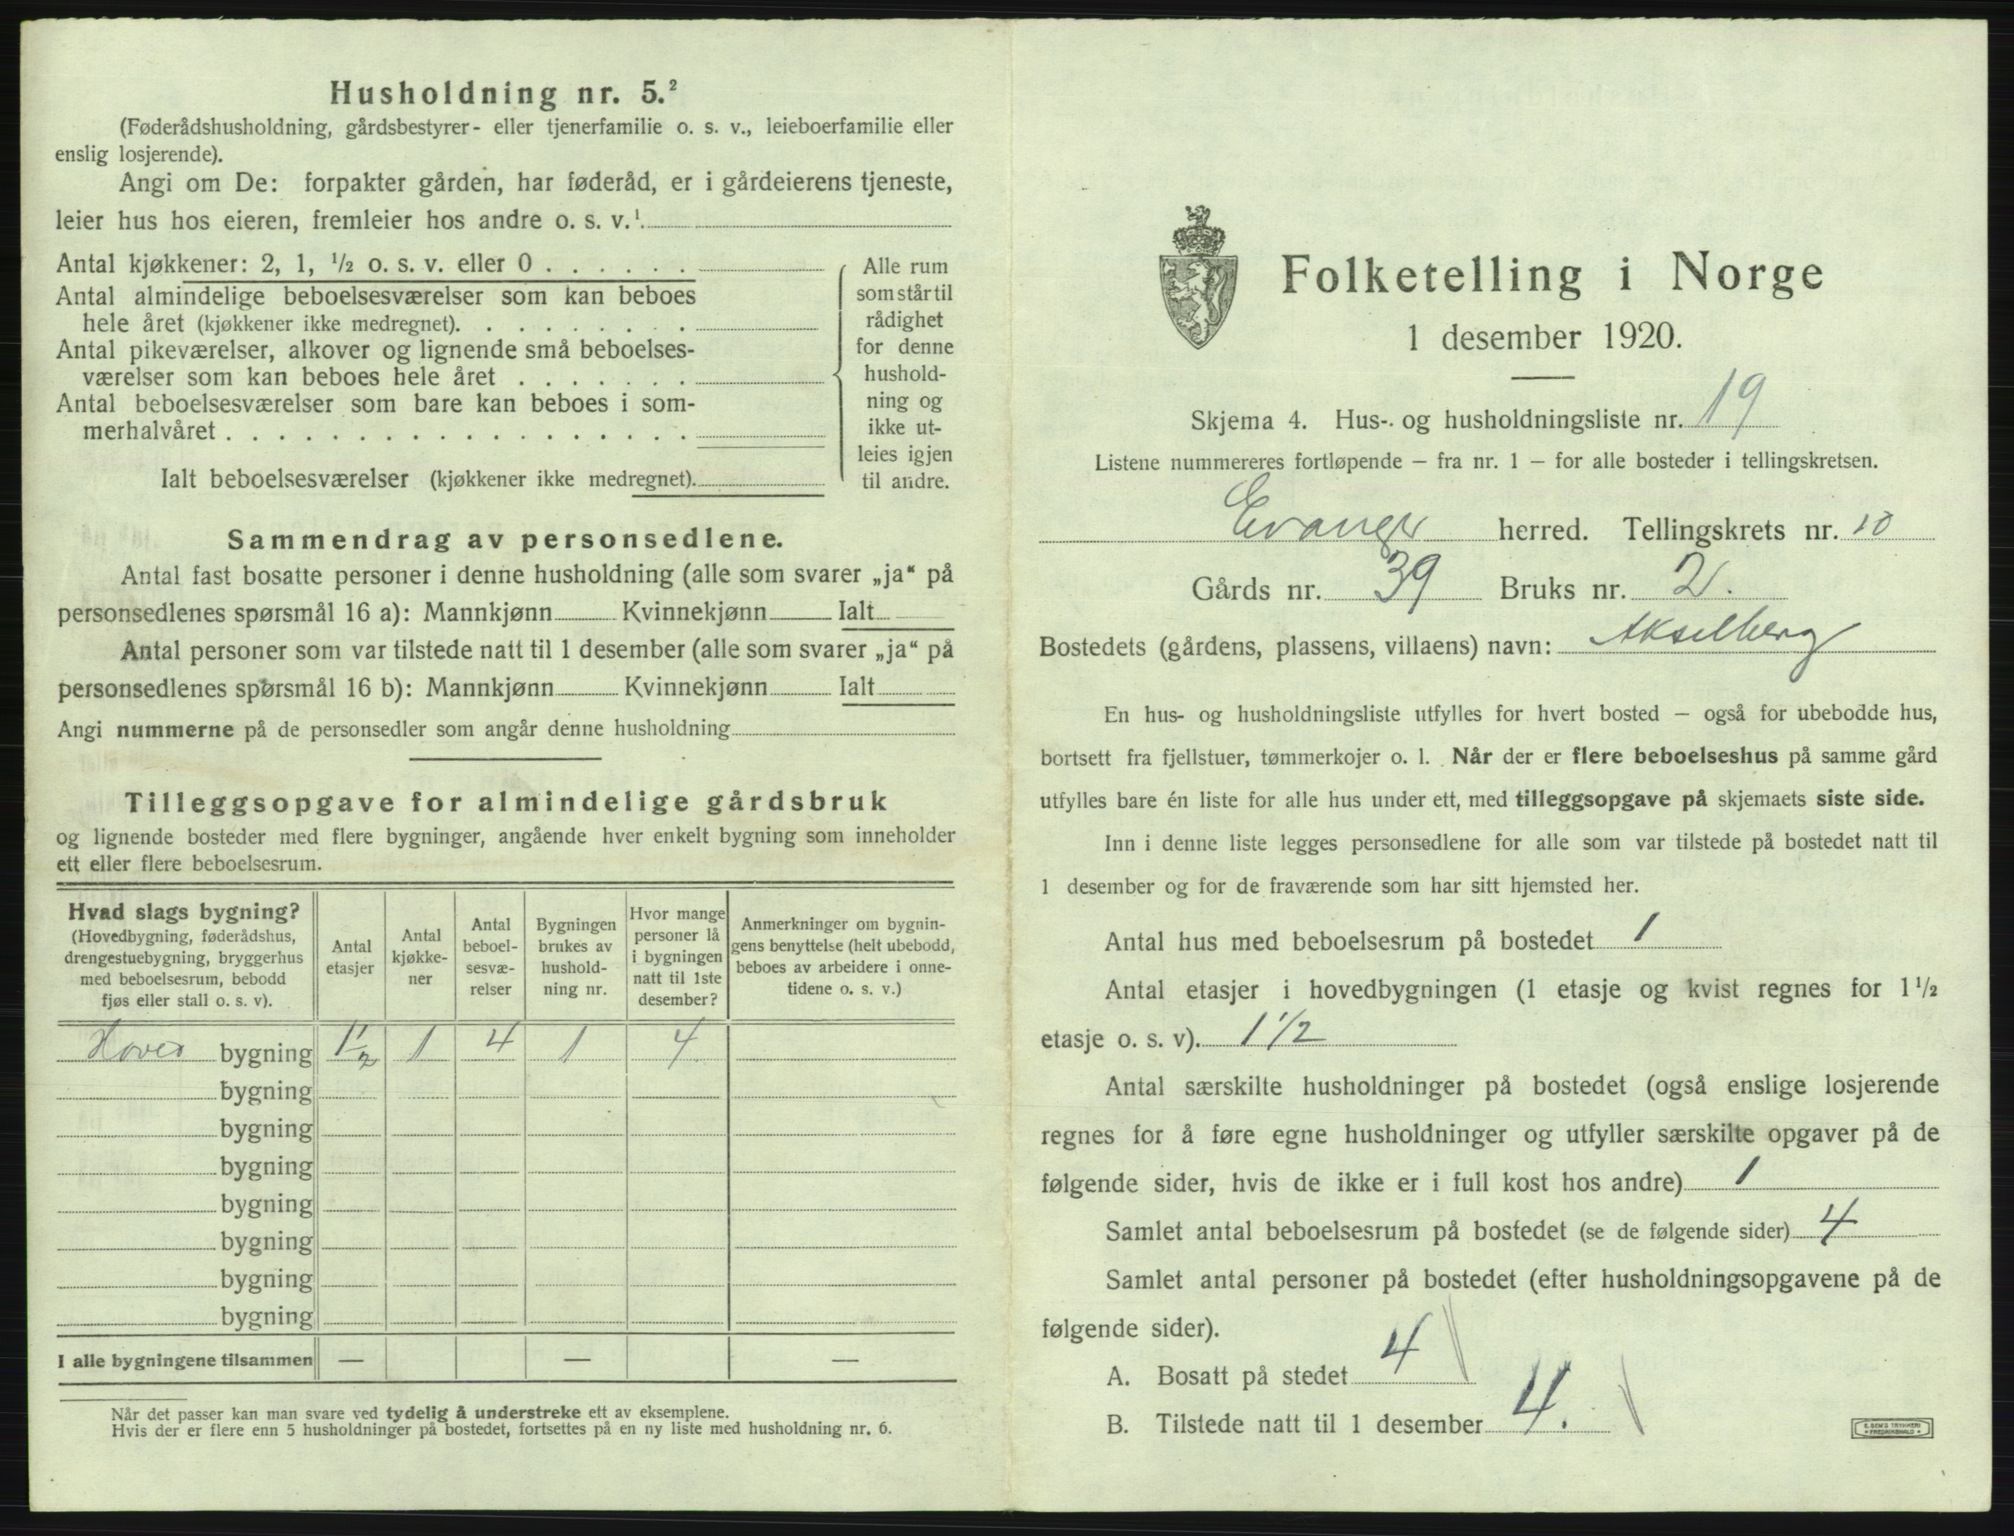 Husholdning nr. 5.²
(Føderådshusholdning, gårdsbestyrer- eller tjenerfamilie o. s. v., leieboerfamilie eller
enslig losjerende).
Angi om De: forpakter gården, har føderåd, er i gårdeierens tjeneste,
leier hus hos eieren, fremleier hos andre o. s. v.¹
Antal kjøkkener: 2, 1, ½ o. s. v. eller 0 . . . . . .
Antal almindelige beboelsesværelser som kan beboes
hele året (kjøkkener ikke medregnet). . . . . . . . .
Antal pikeværelser, alkover og lignende små beboelses-
værelser som kan beboes hele året . . . . . . .
Antal beboelsesværelser som bare kan beboes i som-
merhalvåret . . . . . . . . . . . . . . . . . .
Ialt beboelsesværelser (kjøkkener ikke medregnet).
Alle rum
som står til
rådighet
for denne
hushold-
ning og
ikke ut-
leies igjen
til andre.
Sammendrag av personsedlene.
Antal fast bosatte personer i denne husholdning (alle som svarer „ja“ på
personsedlenes spørsmål 16 a): Mannkjønn Kvinnekjønn Ialt
Antal personer som var tilstede natt til 1 desember (alle som svarer „ja“ på
personsedlenes spørsmål 16 b): Mannkjønn Kvinnekjønn Ialt
Angi nummerne på de personsedler som angår denne husholdning
Tilleggsopgave for almindelige gårdsbruk
og lignende bosteder med flere bygninger, angående hver enkelt bygning som inneholder
ett eller flere beboelsesrum.
Hvad slags bygning?
(Hovedbygning, føderådshus,
drengestuebygning, bryggerhus
med beboelsesrum, bebodd
fjøs eller stall o. s. v).
Antal
etasjer
Antal
kjøkke-
ner
Antal
beboel-
sesvæ-
relser
Bygningen
brukes av
hushold-
ning nr.
Hvor mange
personer lå
i bygningen
natt til 1ste
desember?
Anmerkninger om bygnin-
gens benyttelse (helt ubebodd,
beboes av arbeidere i onne-
tidene o. s. v.)
Hoved bygning 1½ 1 4 1 4
bygning
bygning
bygning
bygning
bygning
bygning
bygning
I alle bygningene tilsammen — — —
Når det passer kan man svare ved tydelig å understreke ett av eksemplene.
Hvis der er flere enn 5 husholdninger på bostedet, fortsettes på en ny liste med husholdning nr. 6.
Folketelling i Norge
1 desember 1920.
Skjema 4. Hus- og husholdningsliste nr. 19
Listene nummereres fortløpende — fra nr. 1 — for alle bosteder i tellingskretsen.
Evanger herred. Tellingskrets nr. 10
Gårds nr. 39 Bruks nr. 2.
Bostedets (gårdens, plassens, villaens) navn: Akselberg
En hus- og husholdningsliste utfylles for hvert bosted — også for ubebodde hus,
bortsett fra fjellstuer, tømmerkojer o. l. Når der er flere beboelseshus på samme gård
utfylles bare én liste for alle hus under ett, med tilleggsopgave på skjemaets siste side.
Inn i denne liste legges personsedlene for alle som var tilstede på bostedet natt til
1 desember og for de fraværende som har sitt hjemsted her.
Antal hus med beboelsesrum på bostedet 1
Antal etasjer i hovedbygningen (1 etasje og kvist regnes for 1½
etasje o. s. v). 1½
Antal særskilte husholdninger på bostedet (også enslige losjerende
regnes for å føre egne husholdninger og utfyller særskilte opgaver på de
følgende sider, hvis de ikke er i full kost hos andre) 1
Samlet antal beboelsesrum på bostedet (se de følgende sider) 4
Samlet antal personer på bostedet (efter husholdningsopgavene på de
følgende sider).
A. Bosatt på stedet 4
B. Tilstede natt til 1 desember 4.
E. SEM'S TRYKKERI
FREDRIKSHALD